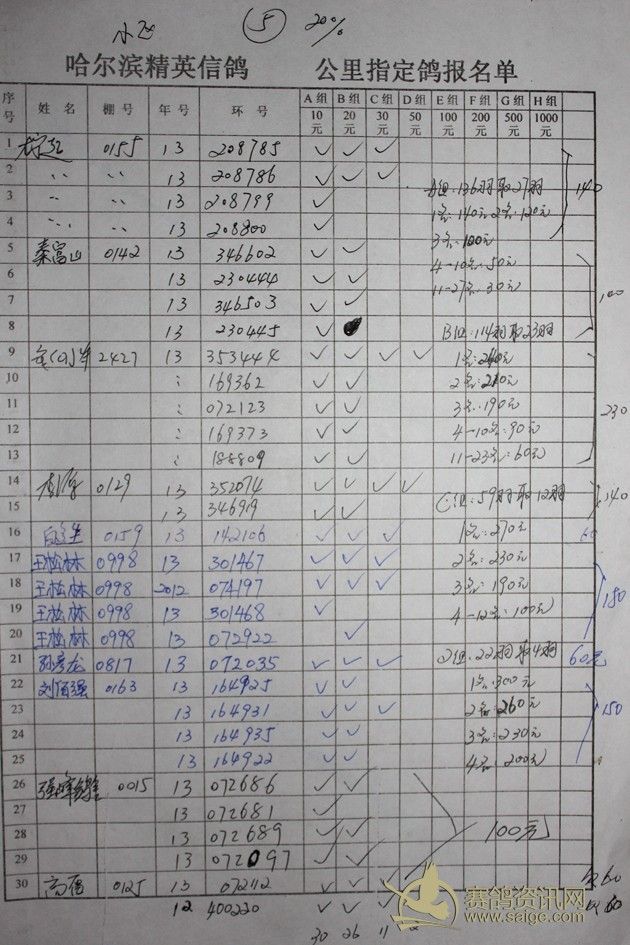 小飞 ⑤ 20%
哈尔滨精英信鸽 公里指定鸽报名单
序号 姓名 棚号 年号 环号 A组10元 B组20元 C组30元 D组50元 E组100元 F组200元 G组500元 H组1000元
1 0155 13 208785 ✓ ✓ ✓
2 〃 〃 13 208786 ✓ ✓ ✓ A组:136羽取27羽 140
3 〃 〃 13 208799 ✓ ✓ 1名:140元 2名:120元
4 〃 〃 13 208800 ✓ ✓ 3名:100元
5 秦富山 0142 13 346602 ✓ ✓ 4-10名:50元
6 13 230444 ✓ ✓ 11-27名:30元
7 13 346503 ✓ ✓ 100
8 13 230445 ✓ B组:114羽取23羽
9 2427 13 353444 ✓ ✓ ✓ ✓ 1名:260元
10 〃 169362 ✓ ✓ 2名:210元
11 〃 072123 ✓ ✓ 3名:190元 230
12 〃 169373 ✓ ✓ 4-10名:90元
13 〃 188809 ✓ ✓ 11-23名:60元
14 0129 13 352074 ✓ ✓ ✓ ✓ C组:59羽取12羽 140
15 13 346919 ✓ ✓
16 0159 13 142106 ✓ ✓ ✓ 1名:270元 60
17 王松林 0998 13 301467 ✓ ✓ ✓ 2名:230元
18 王松林 0998 2012 074197 ✓ ✓ ✓ 3名:190元 180
19 王松林 0998 13 301468 ✓ 4-12名:100元
20 王松林 0998 13 072922 ✓
21 孙彦龙 0817 13 072035 ✓ ✓ ✓ D组:22羽取4羽 60元
22 刘佰强 0163 13 164925 ✓ ✓ 1名:300元
23 13 164931 ✓ ✓ ✓ 2名:260元 150
24 13 164935 ✓ ✓ 3名:230元
25 13 164922 ✓ ✓ 4名:200元
26 0015 13 072686 ✓ ✓
27 13 072681 ✓
28 13 072689 ✓ ✓ 100元
29 13 072097 ✓ ✓
30 高福 0125 13 072112 ✓ ✓ ✓ 60
12 400230 ✓ ✓ ✓ 60
30 26 11
赛鸽资讯网
www.saige.com